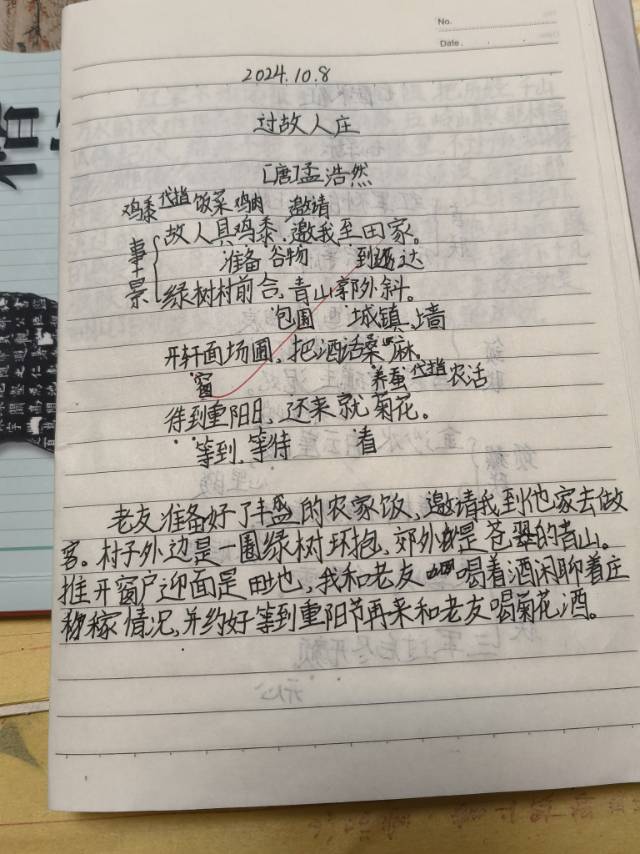 No.
Date.
2024.10.8
过故人庄
[唐]孟浩然
鸡黍代指饭菜 鸡肉 邀请
故人具鸡黍,邀我至田家。
准备 谷物 到达
事
景
绿树村前合,青山郭外斜。
包围 城镇 墙
开轩面场圃,把酒话桑麻。
窗 养蚕代指农活
待到重阳日,还来就菊花。
等到,等待 看
老友准备好了丰盛的农家饭,邀请我到他家去做
客。村子外边是一圈绿树环抱,郊外是苍翠的青山。
推开窗户迎面是田地,我和老友喝着酒闲聊着庄
稼情况,并约好等到重阳节再来和老友喝菊花酒。